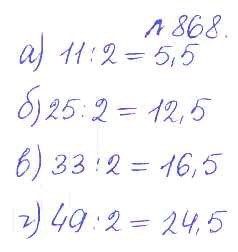 № 868.
а) 11 : 2 = 5,5
б) 25 : 2 = 12,5
в) 33 : 2 = 16,5
г) 49 : 2 = 24,5